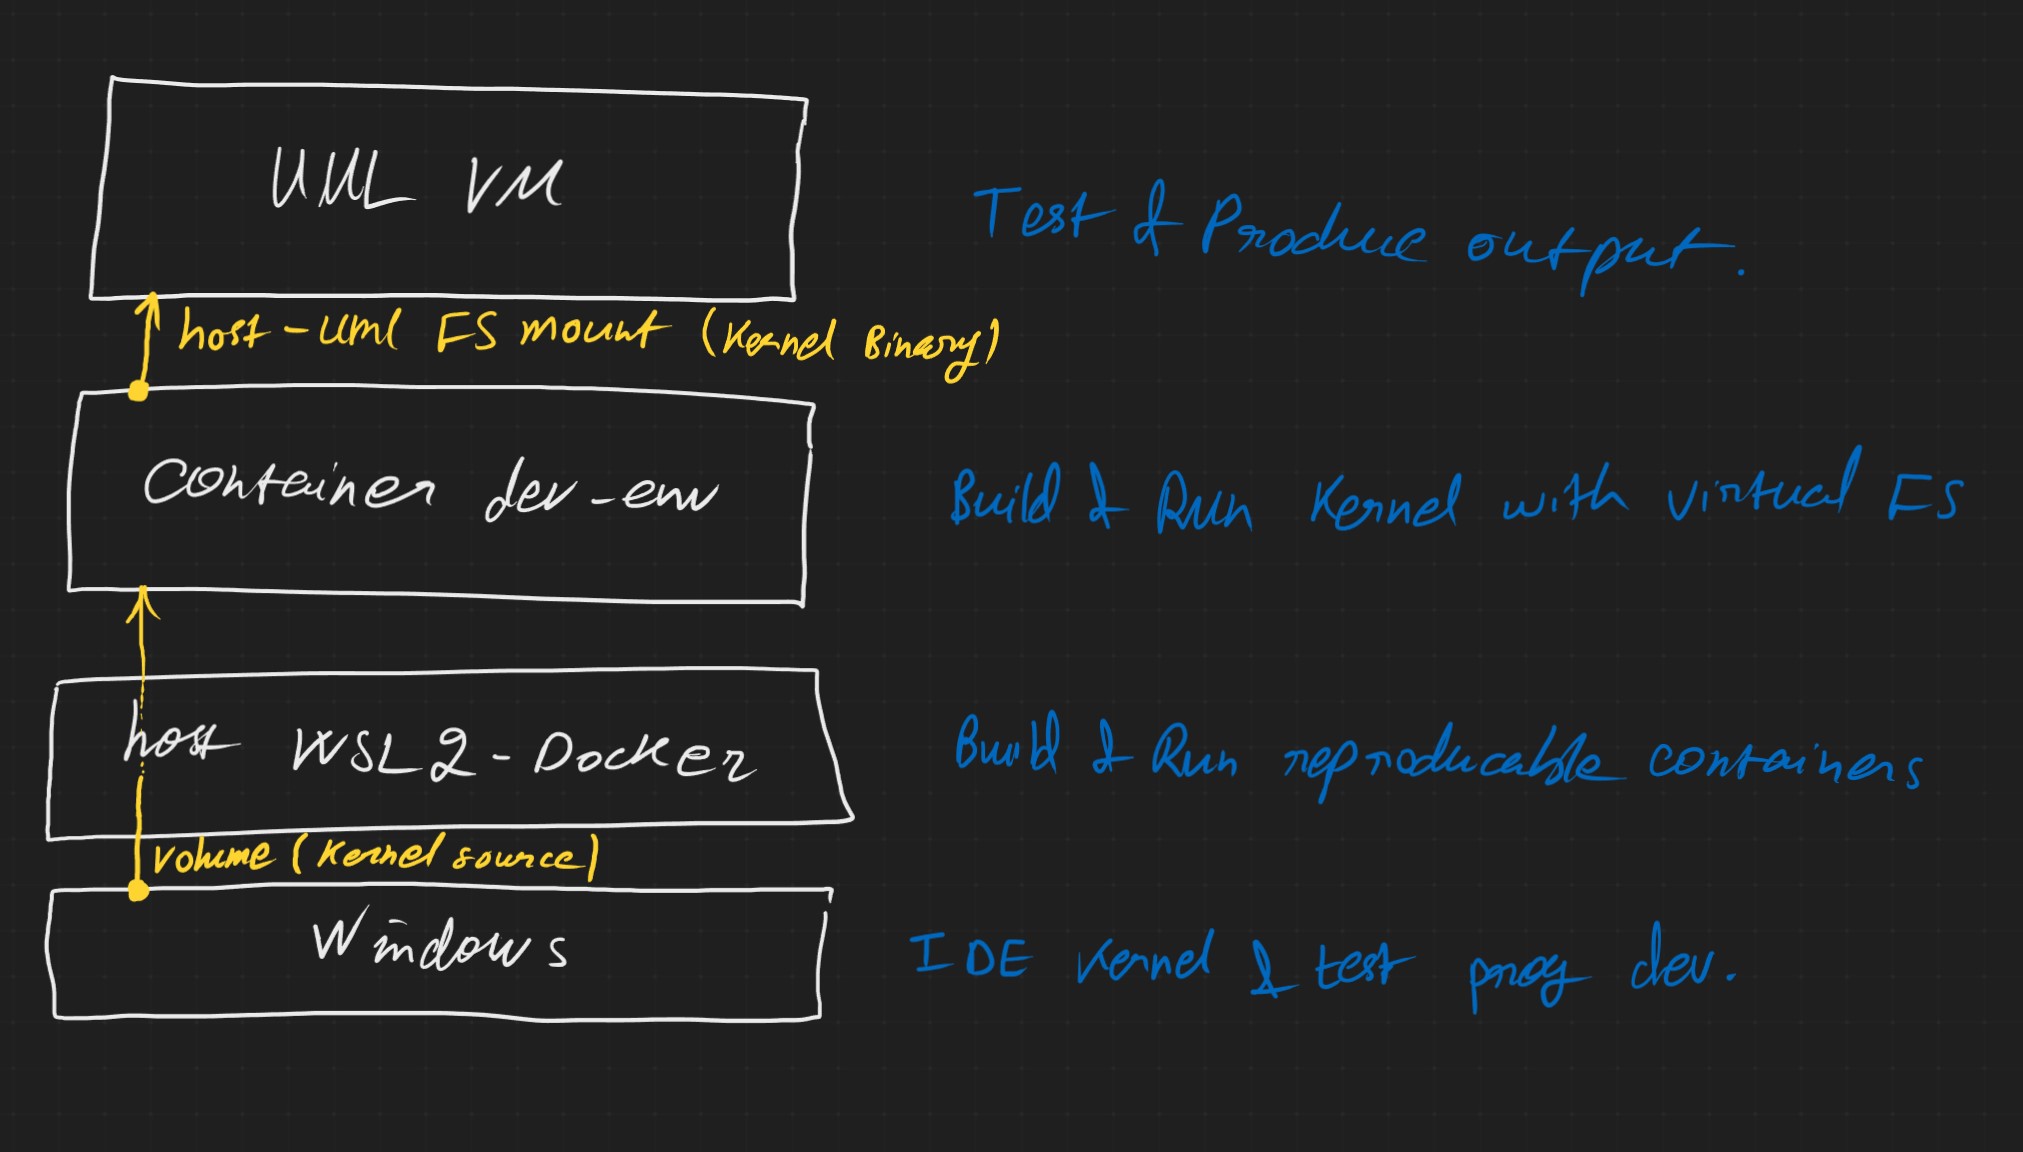 UML VM
Test & Produce output.
host-uml FS mount (Kernel Binary)
Container dev-env
Build & Run Kernel with virtual FS
host WSL2-Docker
Build & Run reproducable containers
volume (Kernel source)
Windows
IDE Kernel & test prog dev.